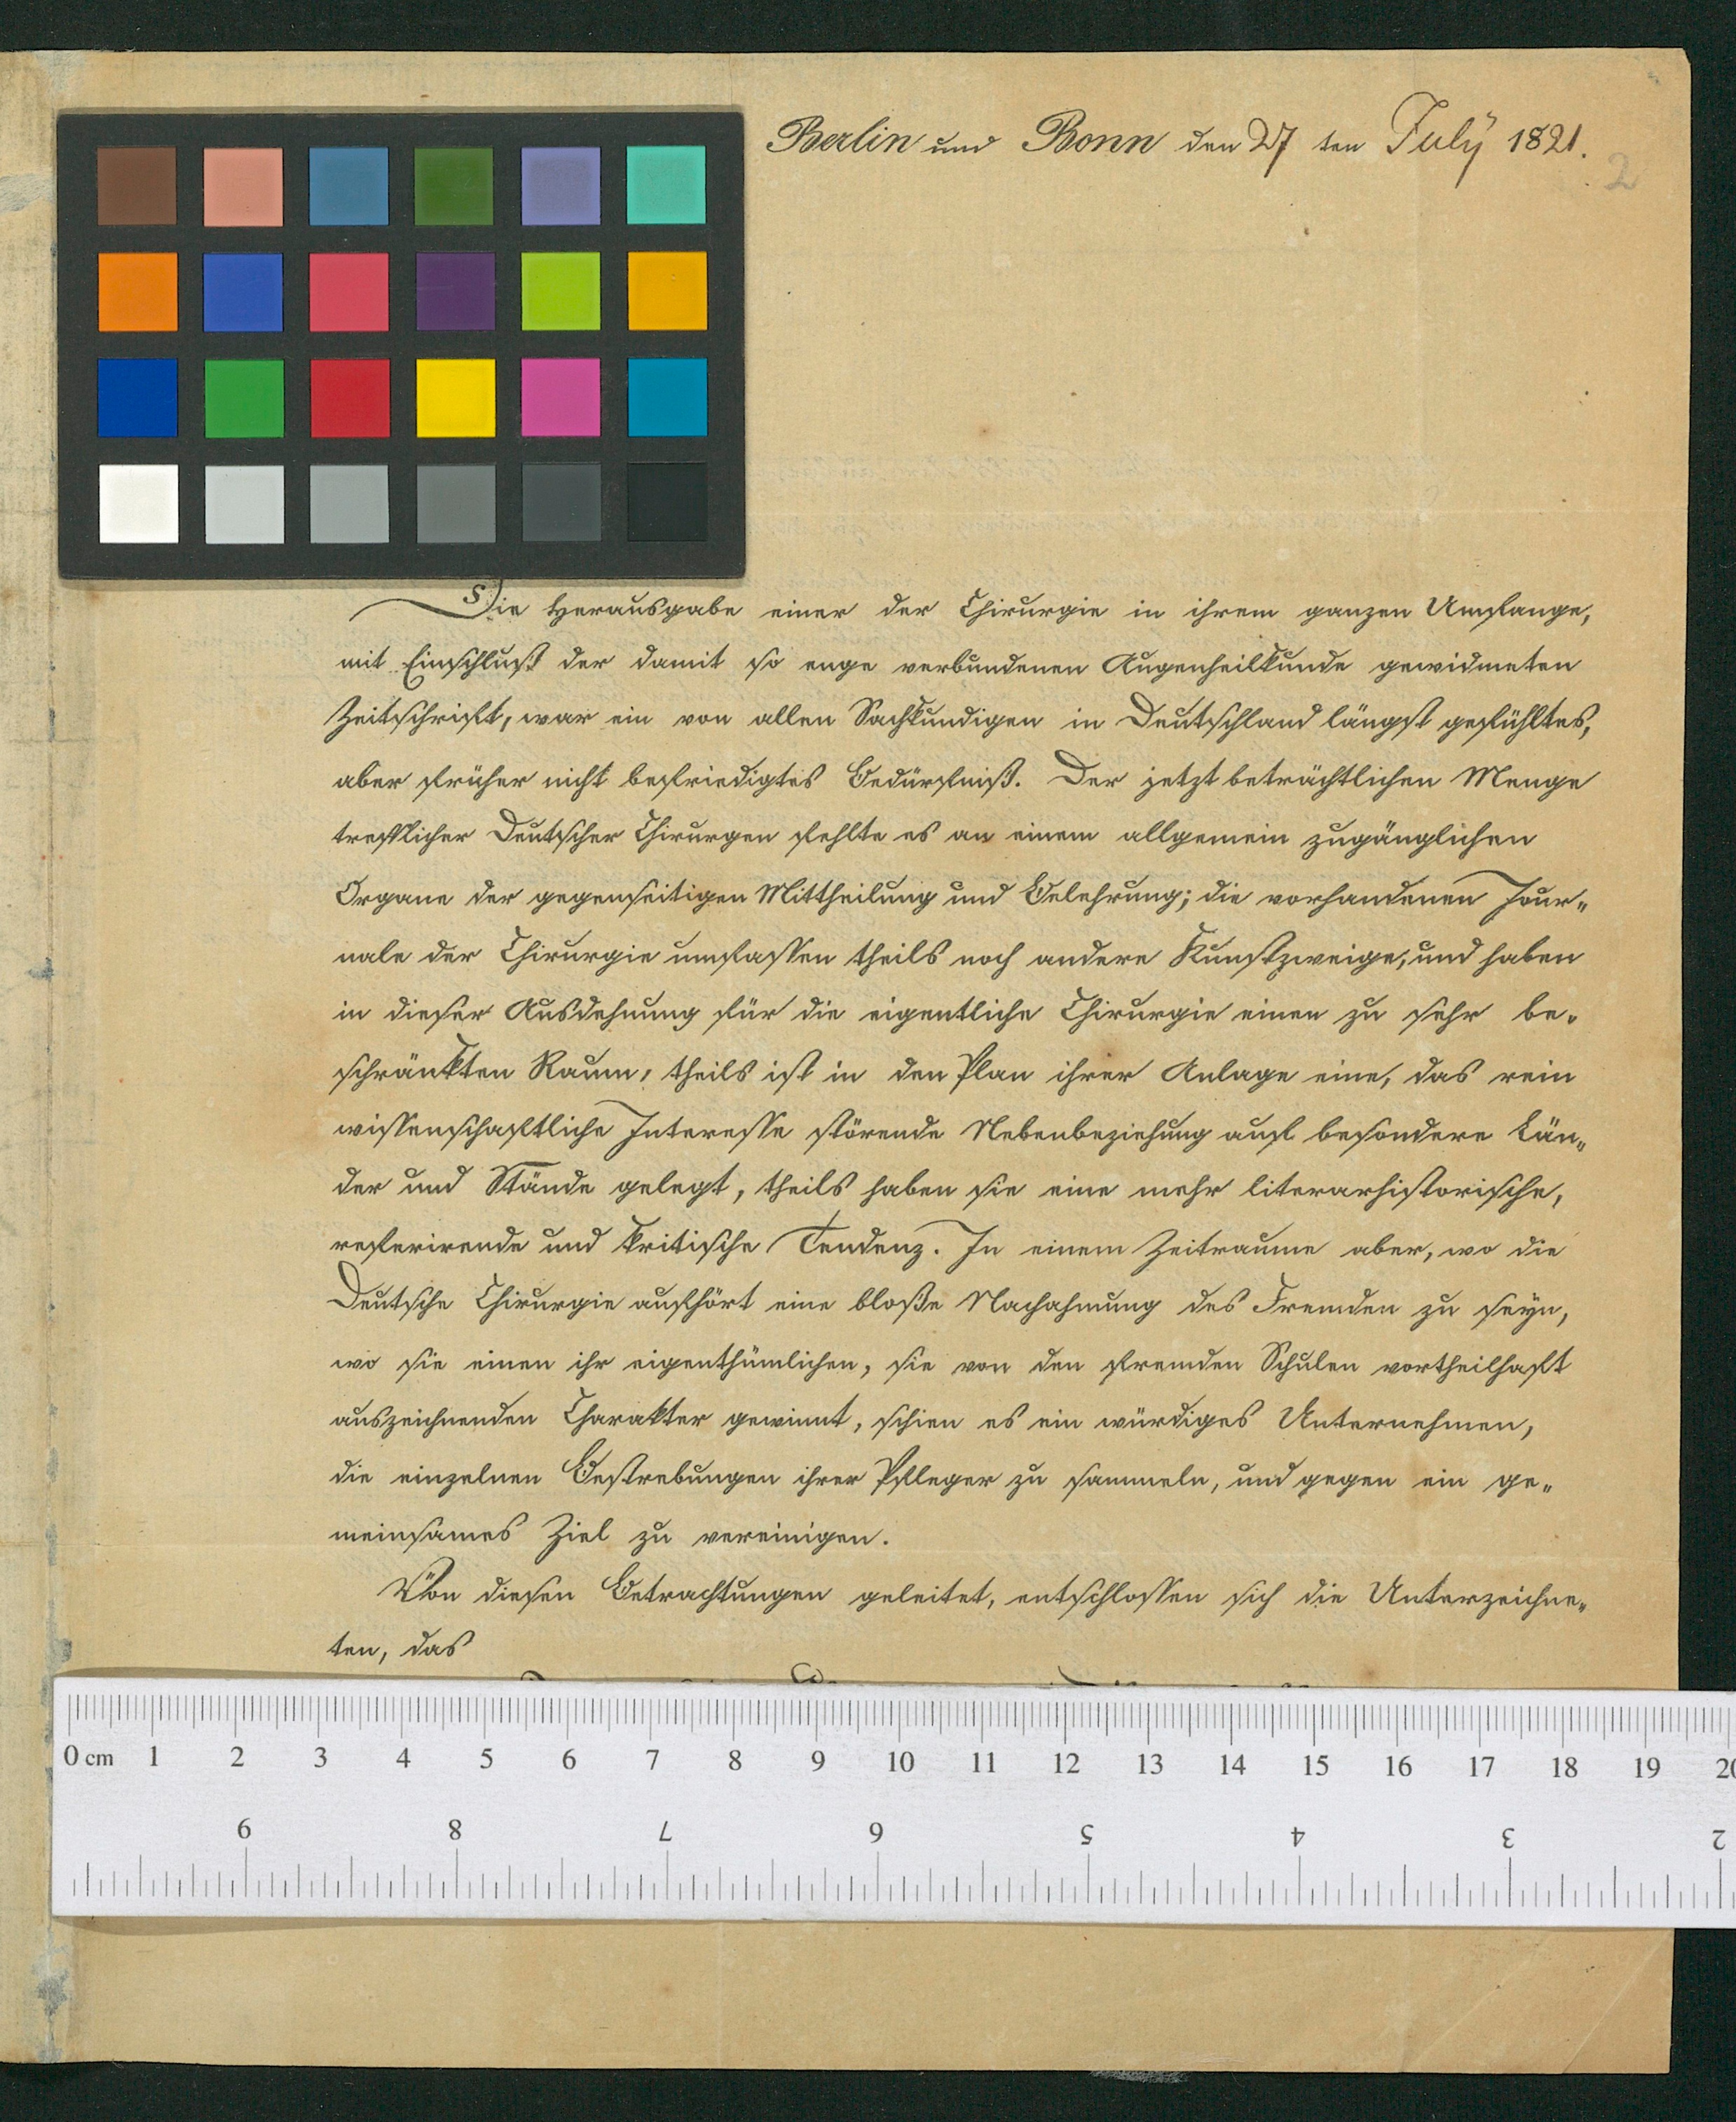 Berlin und Bonn den 27 ten July 1821.
2
Die Herausgabe einer der Chirurgie in ihrem ganzen Umfange,
mit Einschluß der damit so enge verbundenen Augenheilkunde gewidmeten
Zeitschrift, war ein von allen Sachkundigen in Deutschland längst gefühltes,
aber früher nicht befriedigtes Bedürfniß. Der jetzt beträchtlichen Menge
trefflicher Deutscher Chirurgen fehlte es an einem allgemein zugänglichen
Organe der gegenseitigen Mittheilung und Belehrung; die vorhandenen Jour-
nale der Chirurgie umfassen theils noch andere Kunstzweige, und haben
in dieser Ausdehnung für die eigentliche Chirurgie einen zu sehr be-
schränkten Raum, theils ist in den Plan ihrer Anlage eine, das rein
wissenschaftliche Interesse störende Nebenbeziehung auf besondere Län-
der und Stände gelegt, theils haben sie eine mehr literarhistorische,
referirende und kritische Tendenz. In einem Zeitraume aber, wo die
Deutsche Chirurgie aufhört eine bloße Nachahmung des Fremden zu seyn,
wo sie einen ihr eigenthümlichen, sie von den fremden Schulen vortheilhaft
auszeichnenden Charakter gewinnt, schien es ein würdiges Unternehmen,
die einzelnen Bestrebungen ihrer Pfleger zu sammeln, und gegen ein ge-
meinsames Ziel zu vereinigen.
Von diesen Betrachtungen geleitet, entschlossen sich die Unterzeichne-
ten, das
0 cm 1 2 3 4 5 6 7 8 9 10 11 12 13 14 15 16 17 18 19 20
9 8 7 6 5 4 3 2